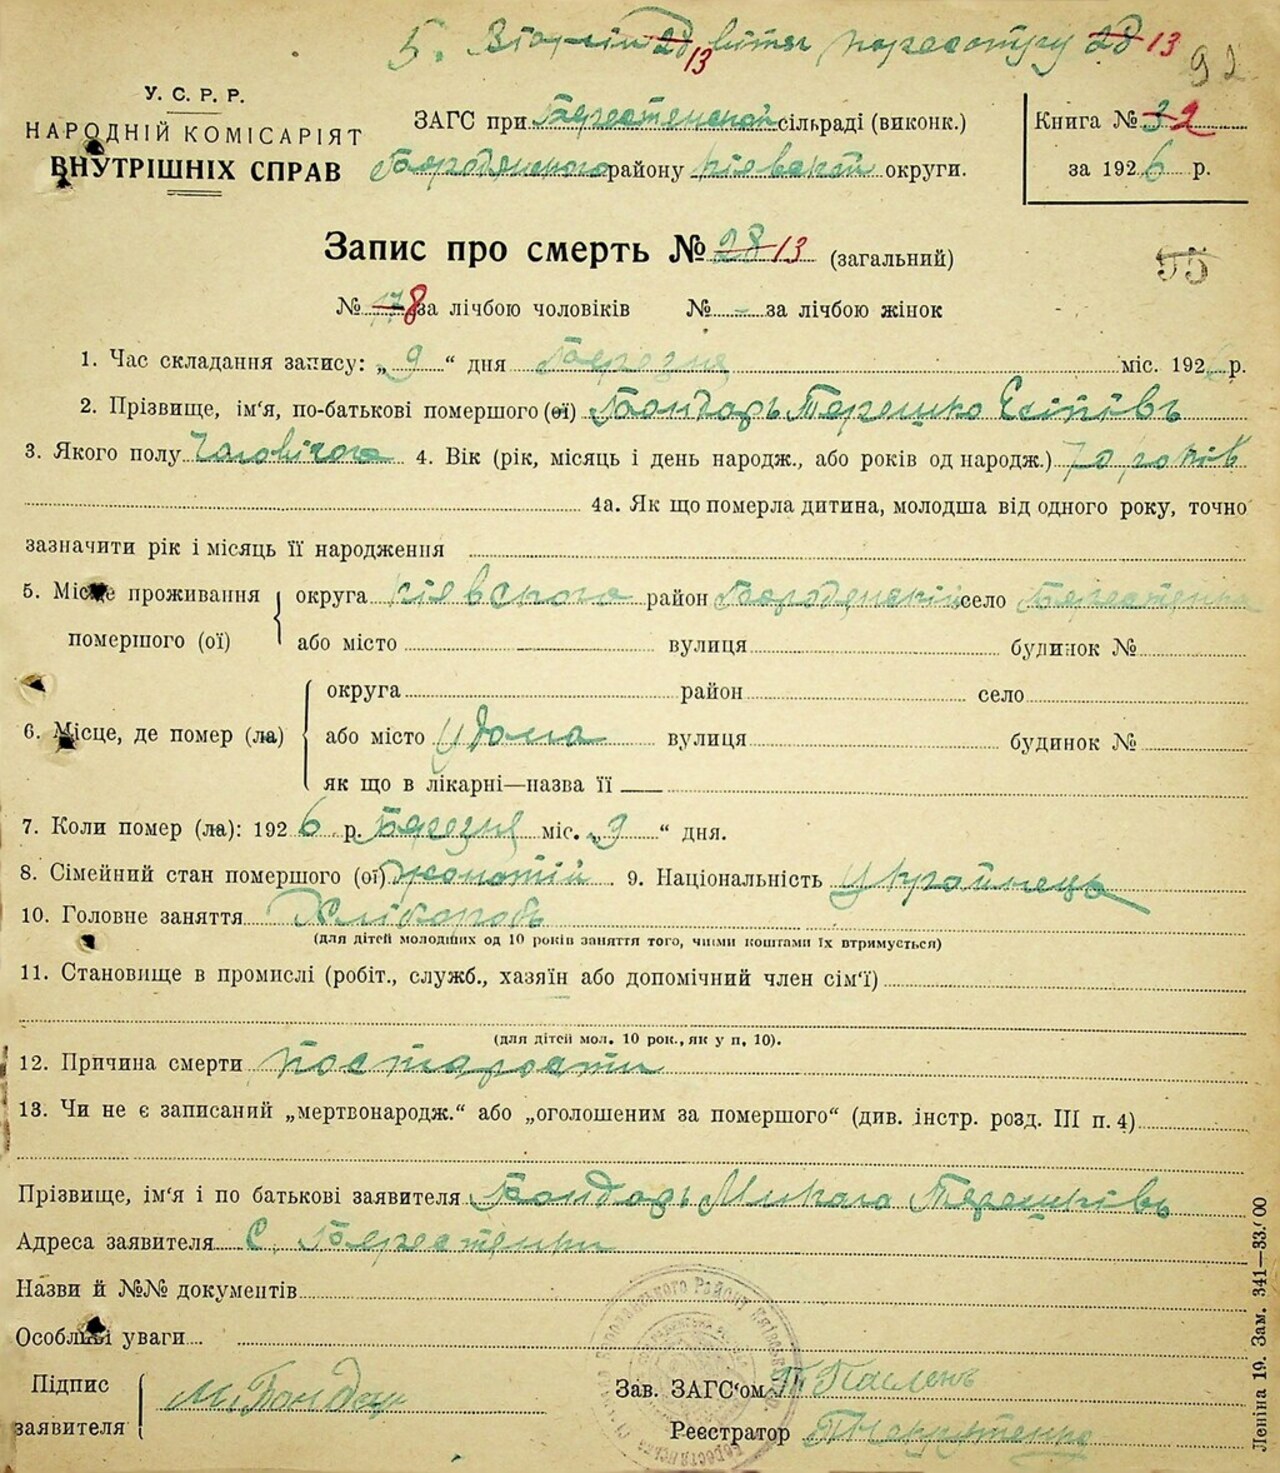 92
У. С. Р. Р.
НАРОДНІЙ КОМІСАРІЯТ
ВНУТРІШНІХ СПРАВ
ЗАГС при Берестянской сільраді (виконк.)
Бородянского району Київскої округи.
Книга № 3 2
за 1926 р.
Запис про смерть № 28 13 (загальний)
55
№ 17 8 за лічбою чоловіків № - за лічбою жінок
1. Час складання запису: „9“ дня Березня міс. 1926 р.
2. Прізвище, ім'я, по-батькові помершого (ої) Бондарь Терешко Есіпівъ
3. Якого полу Чоловічого 4. Вік (рік, місяць і день народж., або років од народж.) 70 років
4а. Як що померла дитина, молодша від одного року, точно
зазначити рік і місяць її народження
5. Місце проживання помершого (ої) округа Київского район Бородянский село Берестянка
або місто вулиця будинок №
6. Місце, де помер (ла) округа район село
або місто у дома вулиця будинок №
як що в лікарні—назва її
7. Коли помер (ла): 1926 р. Березня міс. „9“ дня.
8. Сімейний стан помершого (ої) жонатий 9. Національність Украйнець
10. Головне заняття Хлібороб
(для дітей молодших од 10 років заняття того, чиїми коштами їх втримується)
11. Становище в промислі (робіт., служб., хазяїн або допомічний член сім'ї)
(для дітей мол. 10 рок., як у п. 10).
12. Причина смерти по старости
13. Чи не є записаний „мертвонародж.“ або „оголошеним за помершого“ (див. інстр. розд. III п. 4)
Прізвище, ім'я і по батькові заявителя Бондарь Микола Терешківъ
Адреса заявителя С. Берестянки
Назви й №№ документів
Особливі уваги
Підпис заявителя М. Бондар
Зав. ЗАГС'ом
Реєстратор
Леніна 19. Зам. 341—33.000